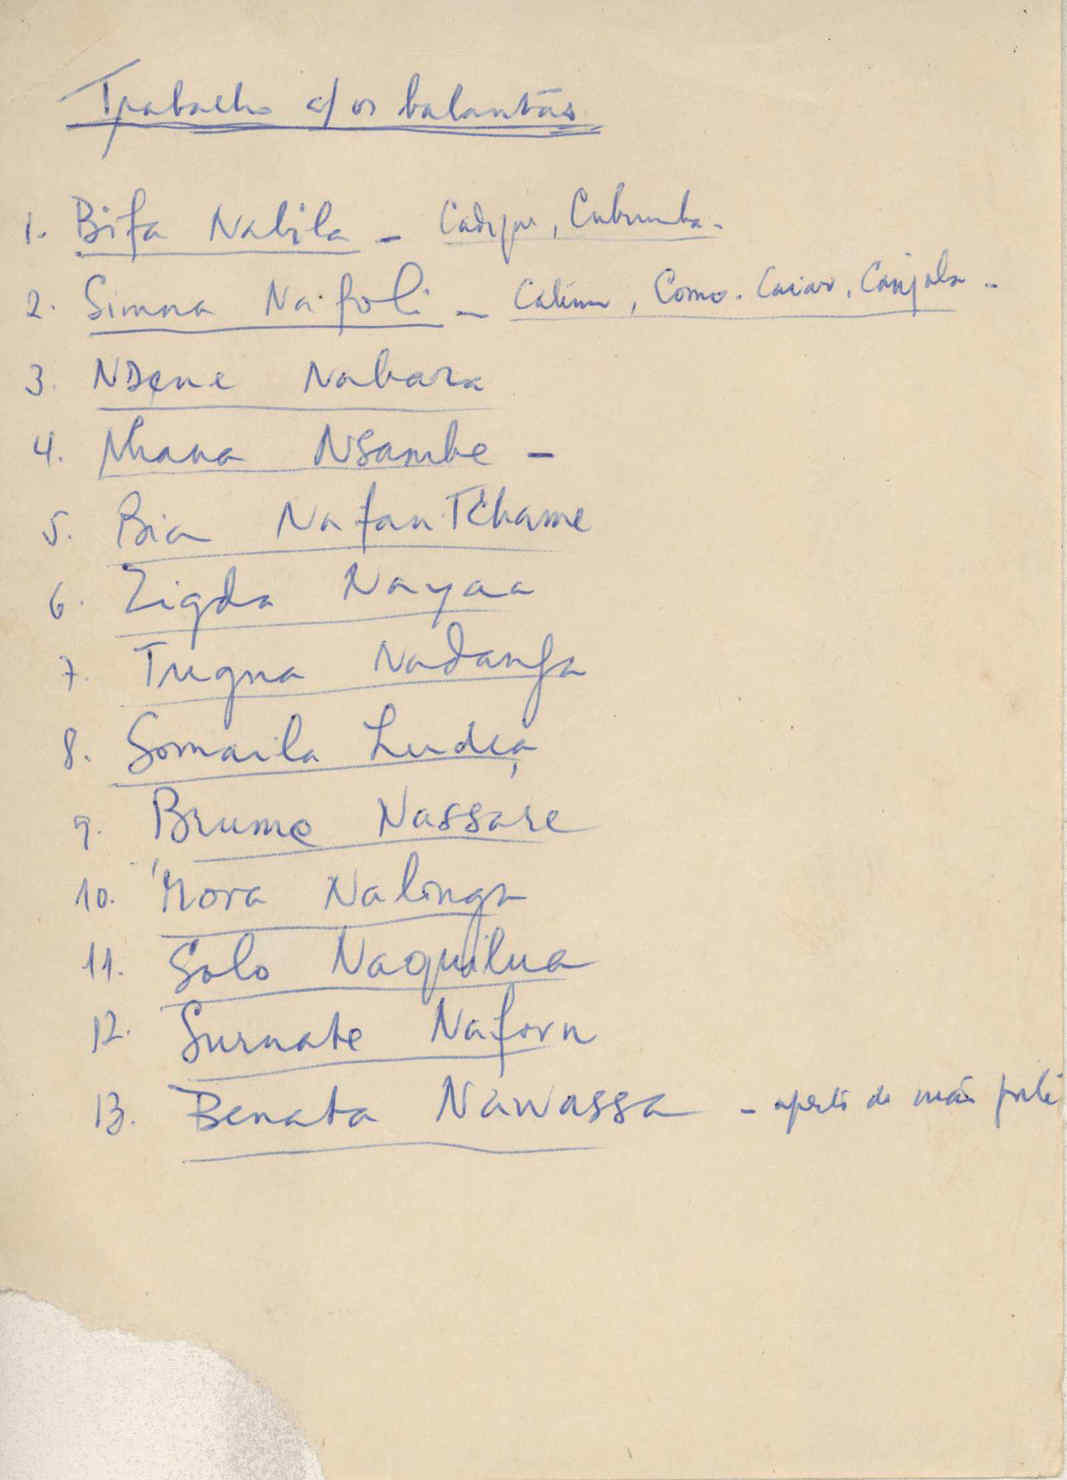 Trabalho c/ os balantas
1. Bifa Nabila - Cadique, Cubumba.
2. Simna Na.foli - Catime, Como. Caiar, Canjola -
3. NDene Nabara
4. Nhana NSambe -
5. Bia Nafan Tchame
6. Zigda Nayaa
7. Tugna Nadanfa
8. Somaila
9. Brume Nassare
10. Mora Nalinga
11. Solo Naquilua
12. Surnate Naforn
13. Benata Nawassa - aperto de mão forte